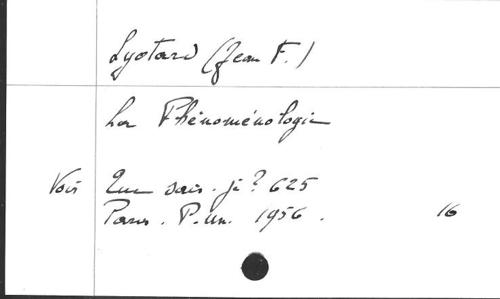 Lyotard (Jean F.)
La Phénoménologie
Voir Que sais-je? 625
Paris. P.Un. 1956. 16